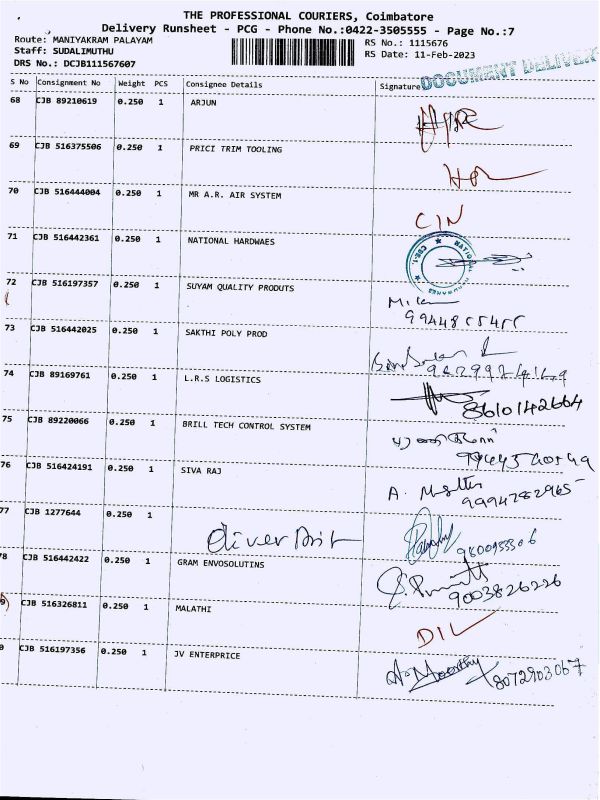 THE PROFESSIONAL COURIERS, Coimbatore
Delivery Runsheet - PCG - Phone No.:0422-3505555 - Page No.:7
Route: MANIYAKRAM PALAYAM
Staff: SUDALIMUTHU
DRS No.: DCJB111567607
RS No.: 1115676
RS Date: 11-Feb-2023
DOCUMENT DELIVER
S No Consignment No Weight PCS Consignee Details Signature
68 CJB 89210619 0.250 1 ARJUN
69 CJB 516375506 0.250 1 PRICI TRIM TOOLING
70 CJB 516444004 0.250 1 MR A.R. AIR SYSTEM
CIN
71 CJB 516442361 0.250 1 NATIONAL HARDWAES
72 CJB 516197357 0.250 1 SUYAM QUALITY PRODUTS
73 CJB 516442025 0.250 1 SAKTHI POLY PROD
74 CJB 89169761 0.250 1 L.R.S LOGISTICS
8610142664
75 CJB 89220066 0.250 1 BRILL TECH CONTROL SYSTEM
76 CJB 516424191 0.250 1 SIVA RAJ
A.
9994782965
77 CJB 1277644 0.250 1
78 CJB 516442422 0.250 1 GRAM ENVOSOLUTINS
9003826226
9 CJB 516326811 0.250 1 MALATHI
DIL
0 CJB 516197356 0.250 1 JV ENTERPRICE
A. Moorthy 8072903067